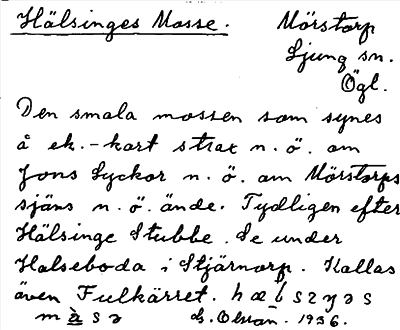 Hälsinges Mosse. Mörstorp
Ljung sn.
Ögl.
Den smala mossen som synes
å ek.-kart strax n.ö. om
Jons Lyckor n.ö. om Mörstorps
sjäns n.ö. ände. Tydligen efter
Hälsinge Stubbe. Se under
Halseboda i Stjärnorp. Kallas
även Fulkärret.
Olsson. 1936.